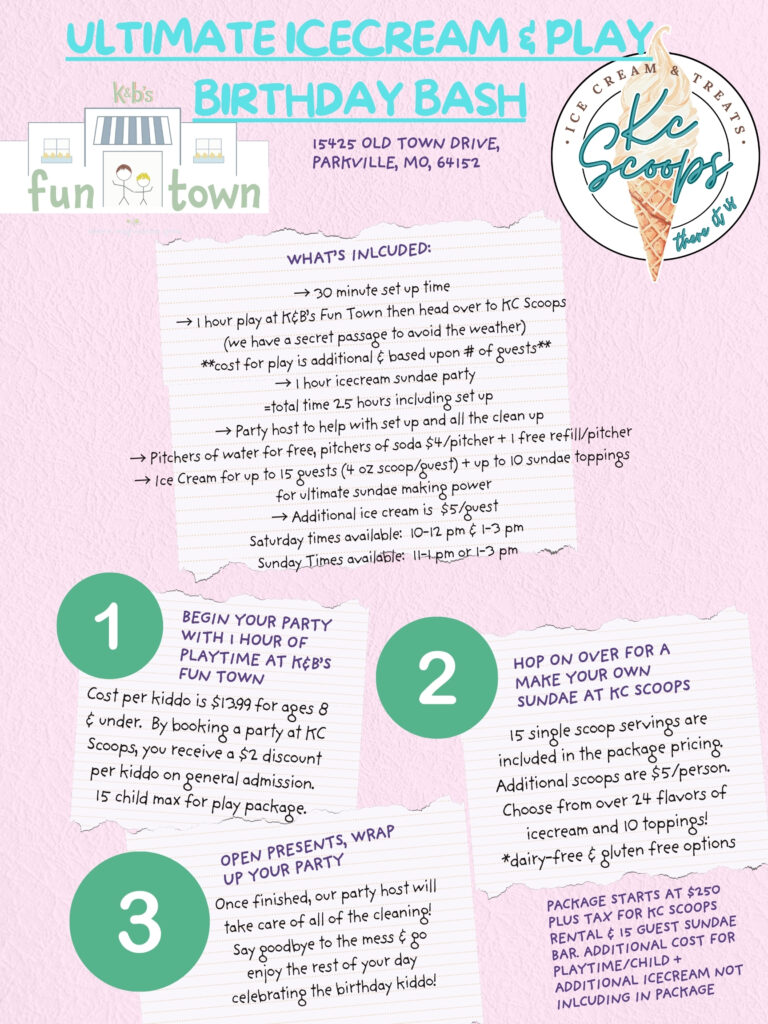 ULTIMATE ICECREAM & PLAY
BIRTHDAY BASH
K&B's
fun town
15425 OLD TOWN DRIVE,
PARKVILLE, MO, 64152
• ICE CREAM & TREATS •
Kc
Scoops
there it is
WHAT'S INLCUDED:
→ 30 minute set up time
→ 1 hour play at K&B's Fun Town then head over to KC Scoops
(we have a secret passage to avoid the weather)
**cost for play is additional & based upon # of guests**
→ 1 hour icecream sundae party
=total time 2.5 hours including set up
→ Party host to help with set up and all the clean up
→ Pitchers of water for free, pitchers of soda $4/pitcher + 1 free refill/pitcher
→ Ice Cream for up to 15 guests (4 oz scoop/guest) + up to 10 sundae toppings
for ultimate sundae making power
→ Additional ice cream is $5/guest
Saturday times available: 10-12 pm & 1-3 pm
Sunday Times available: 11-1 pm or 1-3 pm
1
BEGIN YOUR PARTY
WITH 1 HOUR OF
PLAYTIME AT K&B'S
FUN TOWN
Cost per kiddo is $13.99 for ages 8
& under. By booking a party at KC
Scoops, you receive a $2 discount
per kiddo on general admission.
15 child max for play package.
2
HOP ON OVER FOR A
MAKE YOUR OWN
SUNDAE AT KC SCOOPS
15 single scoop servings are
included in the package pricing.
Additional scoops are $5/person.
Choose from over 24 flavors of
icecream and 10 toppings!
*dairy-free & gluten free options
3
OPEN PRESENTS, WRAP
UP YOUR PARTY
Once finished, our party host will
take care of all of the cleaning!
Say goodbye to the mess & go
enjoy the rest of your day
celebrating the birthday kiddo!
PACKAGE STARTS AT $250
PLUS TAX FOR KC SCOOPS
RENTAL & 15 GUEST SUNDAE
BAR. ADDITIONAL COST FOR
PLAYTIME/CHILD +
ADDITIONAL ICECREAM NOT
INLCUDING IN PACKAGE